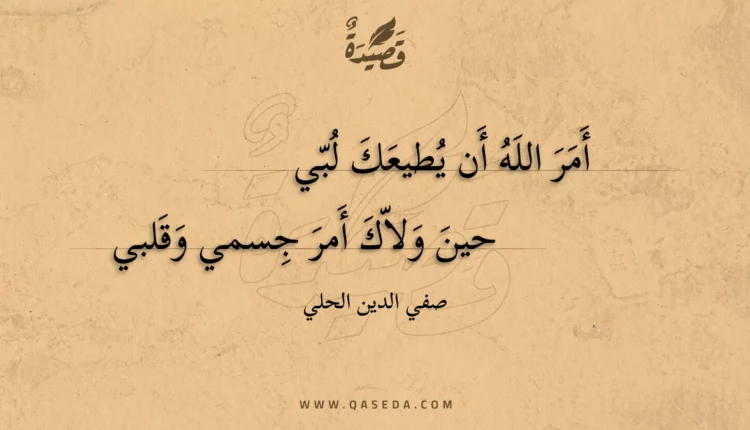 قَصِيْدَةٌ
أَمَرَ اللَهُ أَن يُطيعَكَ لُبّي
حينَ وَلاّكَ أَمرَ جِسمي وَقَلبي
صفي الدين الحلي
WWW.QASEDA.COM